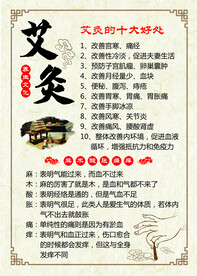 艾灸
养生文化
艾灸的十大好处
1、改善宫寒、痛经
2、改善性冷淡,促进夫妻生活
3、预防子宫肌瘤、卵巢囊肿
4、改善月经量少、血块
5、便秘、腹泻、痔疮
6、改善胃寒、胃痛、胃胀痛
7、改善手脚冰凉
8、改善风寒、关节炎
9、改善痛风、腰酸背虚
10、整体改善内环境,促进血液
循环,增强抵抗力和免疫力
麻木酸胀痛痒
麻:表明气能过来,而血不过来
木:麻的厉害了就是木,是血和气都不来了
酸:表明经络是通的,但是气血不足
胀:表明气很足,此类人是爱生气的体质,若体内
气不出去就鼓胀
痛:单纯性的痛则是因为有淤血
痒:表明气和血正要过来,伤口愈合
的时候都会发痒,但这与全身
发痒不同